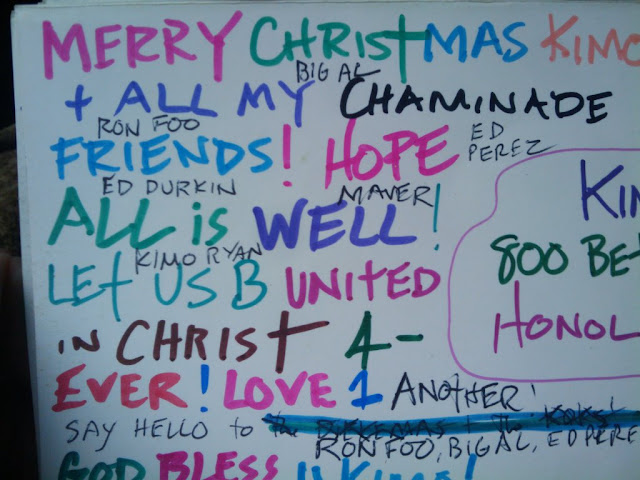 MERRY CHRISTMAS KIMO
BIG AL
+ ALL MY CHAMINADE
RON FOO
FRIENDS! HOPE ED PEREZ
ED DURKIN MAVER
ALL iS WELL!
KIMO RYAN
LET US B UNITED
IN CHRIST 4-
EVER! LOVE 1 ANOTHER!
SAY HELLO to the
RON FOO, BIG AL, ED PERE
GOD BLESS
KIN
800 BE
HONOL